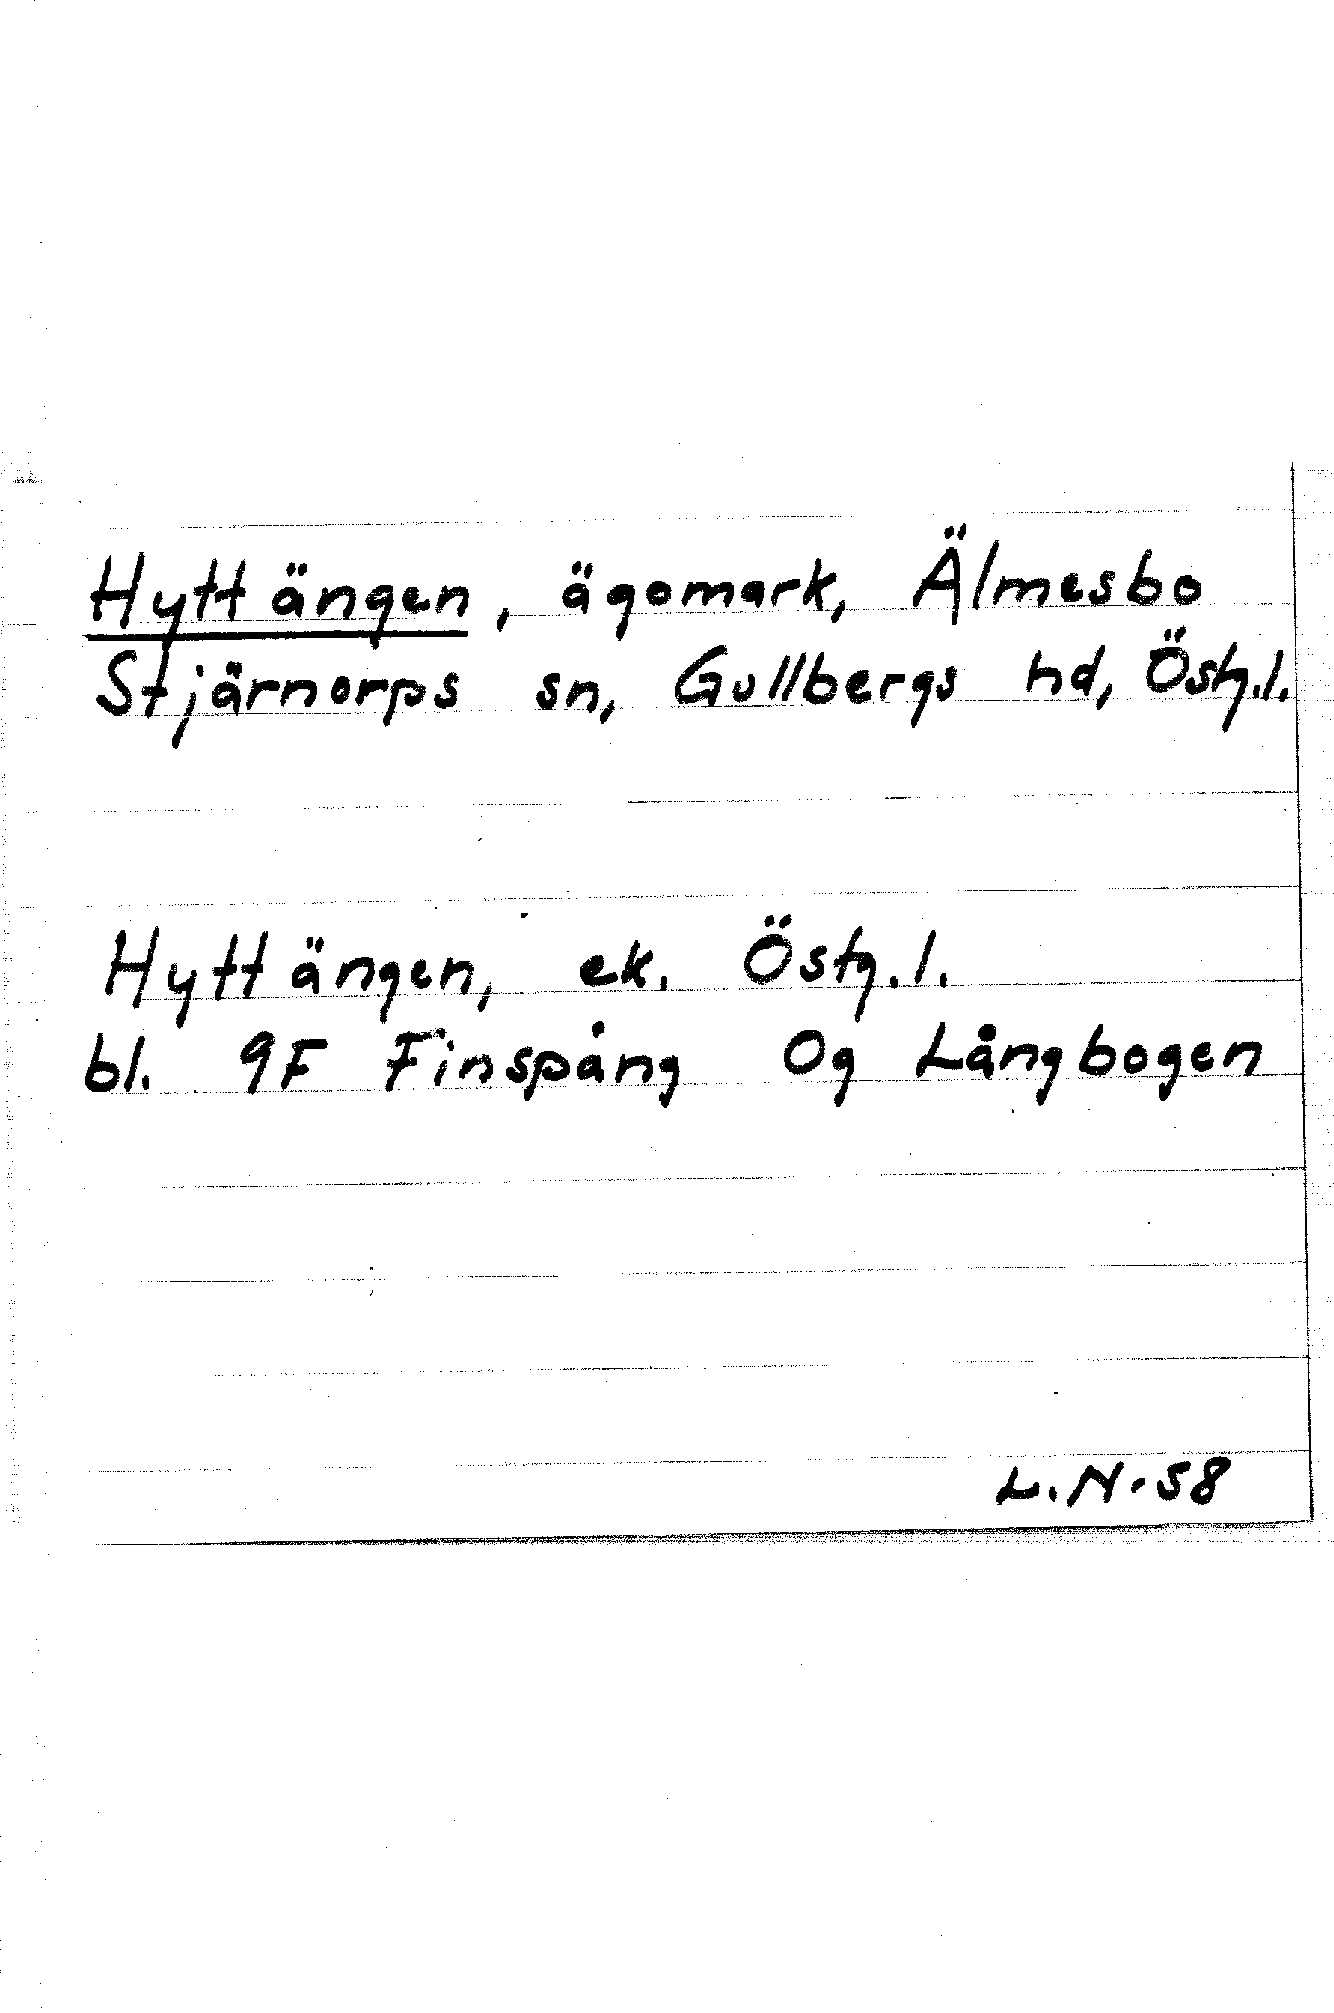 Hyttängen, ägomark, Älmesbo
Stjärnorps sn, Gullbergs hd, Östg.l.
Hyttängen, ek. Östg.l.
bl. 9F Finspång 0g Långbogen
L.N.58